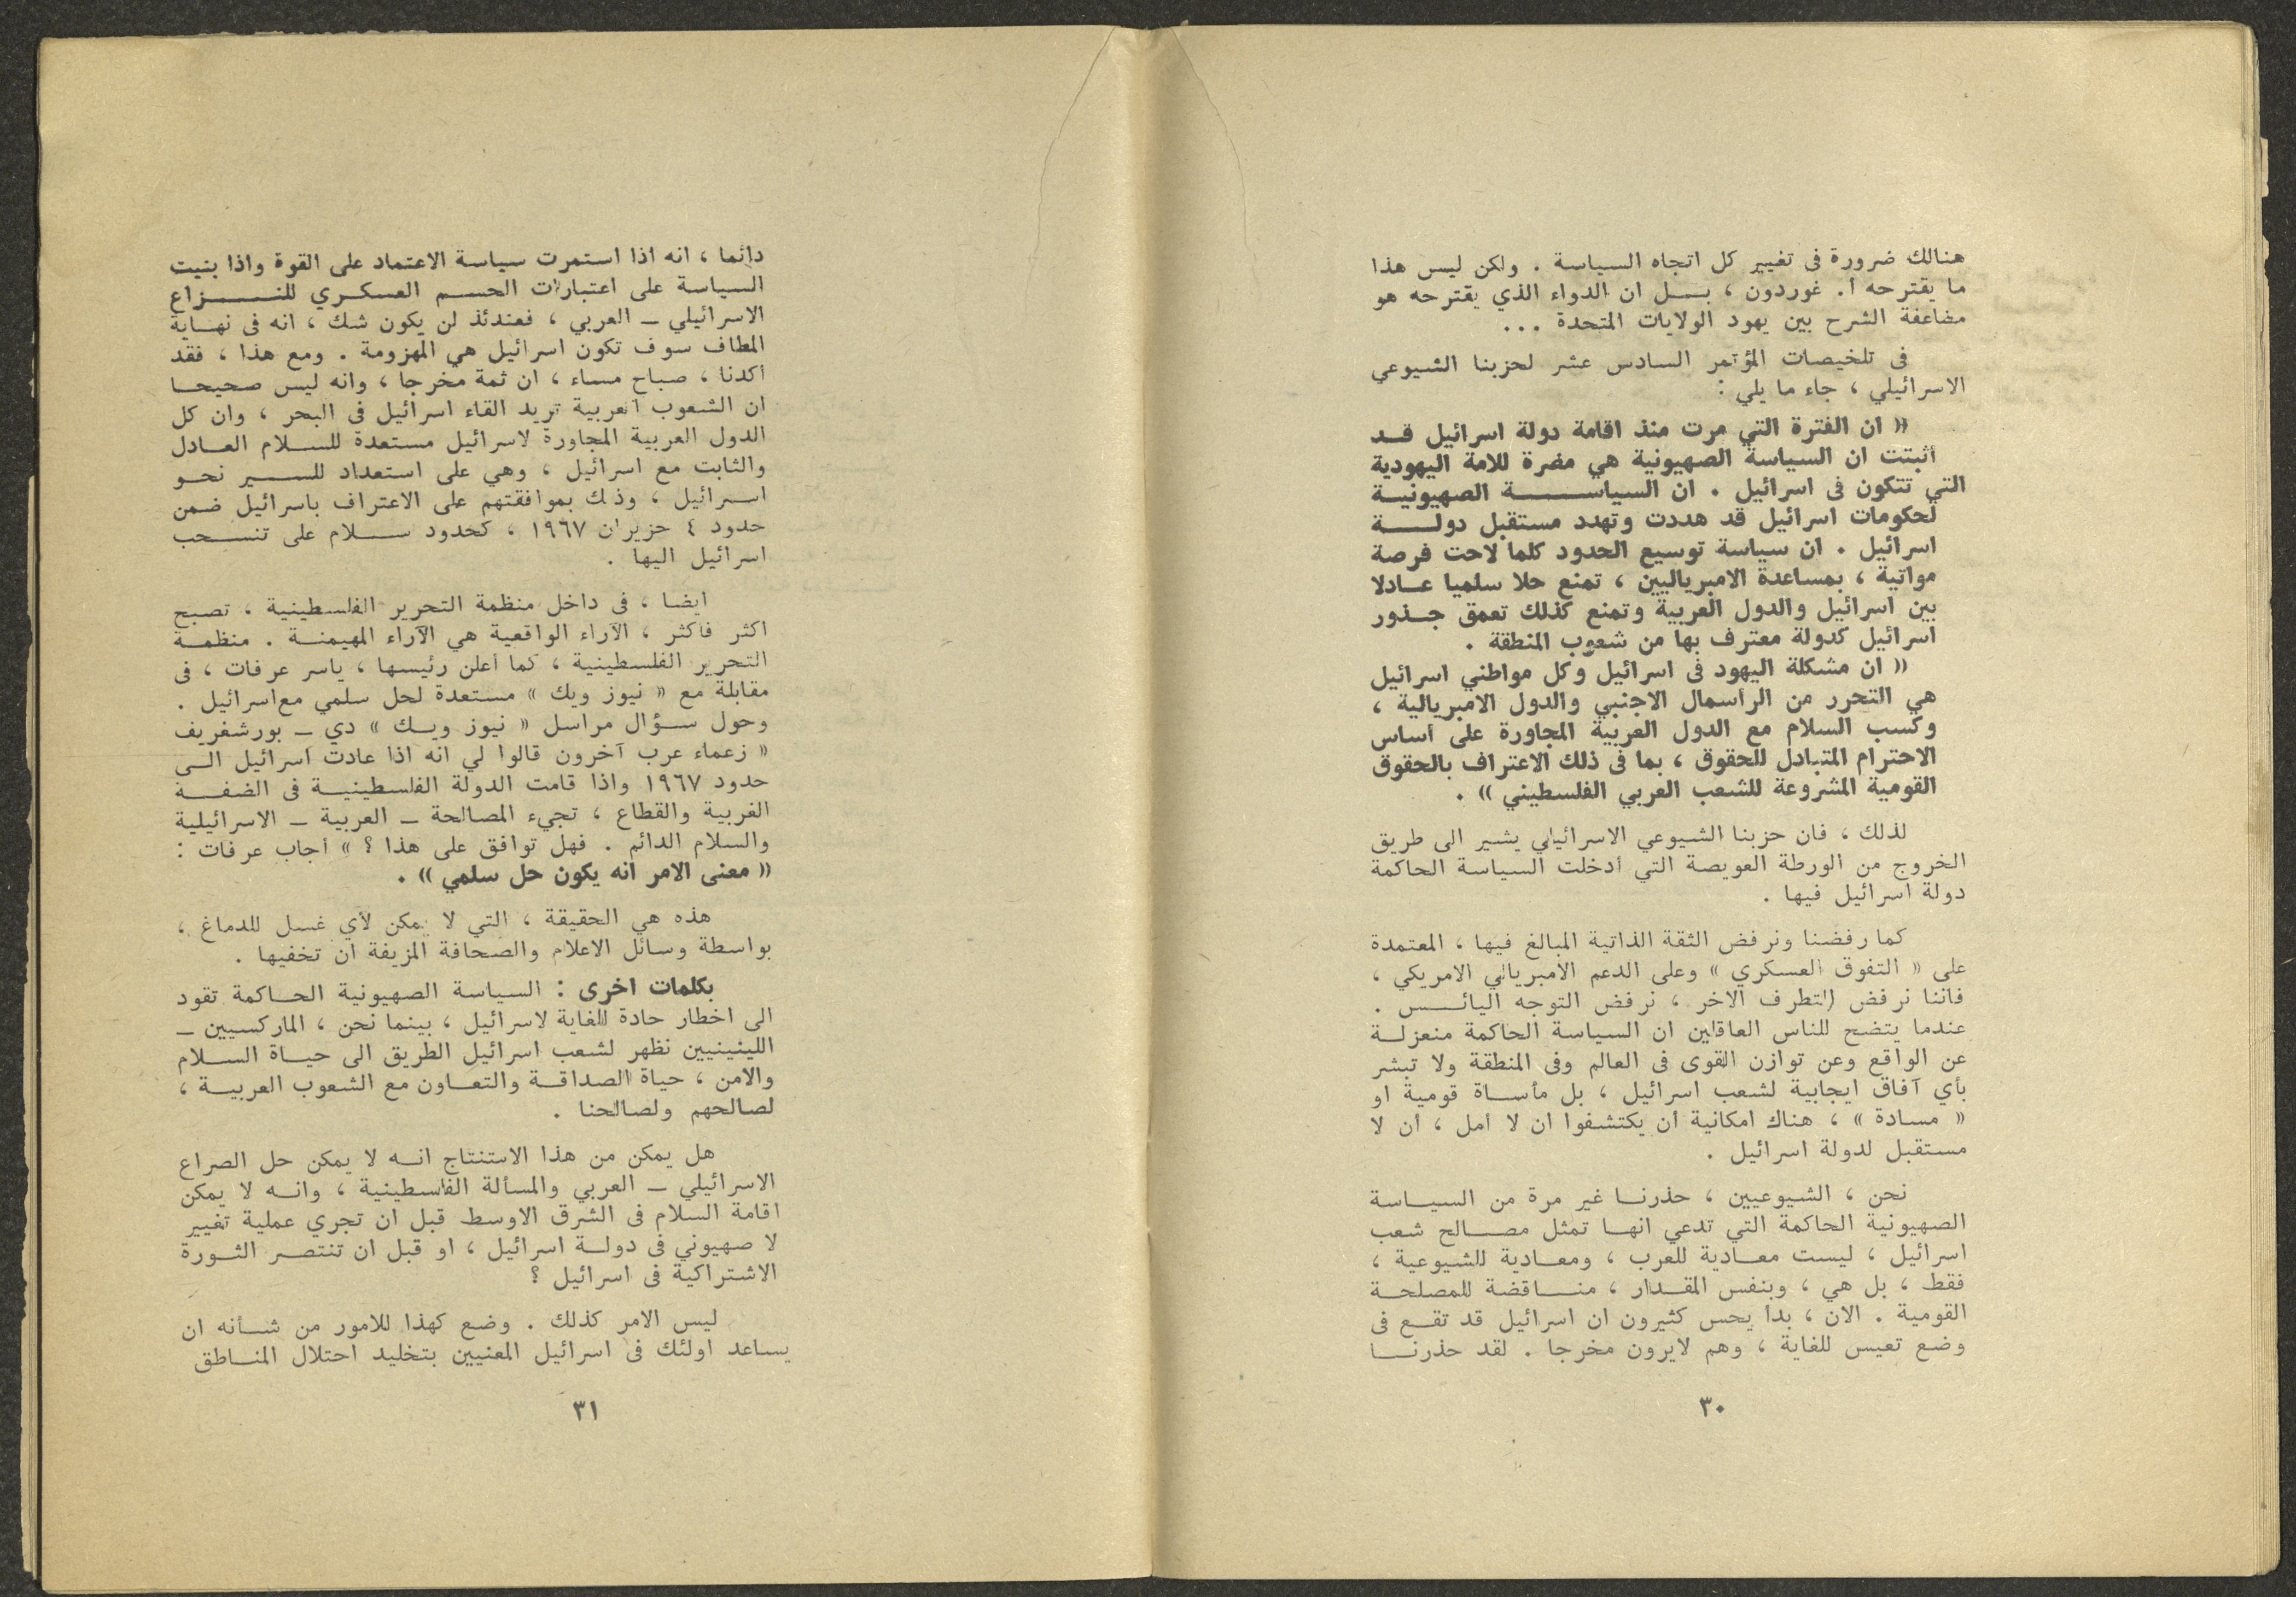 هنالك ضرورة فى تغيير كل اتجاه السياسة . ولكن ليس هذا
ما يقترحه أ. غوردون ، بـــل ان الدواء الذي يقترحه هو
مضاعفة الشرح بين يهود الولايات المتحدة ...
فى تلخيصات المؤتمر السادس عشر لحزبنا الشيوعي
الاسرائيلي ، جاء ما يلي :
« ان الفترة التي مرت منذ اقامة دولة اسرائيل قــد
أثبتت ان السياسة الصهيونية هي مضرة للامة اليهودية
التي تتكون فى اسرائيل . ان السياســـــة الصهيونيــة
لحكومات اسرائيل قد هددت وتهدد مستقبل دولــــة
اسرائيل . ان سياسة توسيع الحدود كلما لاحت فرصة
مواتية ، بمساعدة الامبرياليين ، تمنع حلا سلميا عــادلا
بين اسرائيل والدول العربية وتمنع كذلك تعمق جــذور
اسرائيل كدولة معترف بها من شعوب المنطقة .
« ان مشكلة اليهود فى اسرائيل وكل مواطني اسرائيل
هي التحرر من الرأسمال الاجنبي والدول الامبريالية ،
وكسب السلام مع الدول العربية المجاورة على أساس
الاحترام المتبادل للحقوق ، بما فى ذلك الاعتراف بالحقوق
القومية المشروعة للشعب العربي الفلسطيني » .
لذلك ، فان حزبنا الشيوعي الاسرائيلي يشير الى طريق
الخروج من الورطة العويصة التي أدخلت السياسة الحاكمة
دولة اسرائيل فيها .
كما رفضنا ونرفض الثقة الذاتية المبالغ فيها ، المعتمدة
على « التفوق العسكري » وعلى الدعم الامبريالي الامريكي ،
فاننا نرفض التطرف الآخر ، نرفض التوجه اليائـــس .
عندما يتضح للناس العاقلين ان السياسة الحاكمة منعزلــة
عن الواقع وعن توازن القوى فى العالم وفى المنطقة ولا تبشر
بأي آفاق ايجابية لشعب اسرائيل ، بل مأســاة قومية او
« مسادة » ، هناك امكانية أن يكتشفوا ان لا أمل ، أن لا
مستقبل لدولة اسرائيل .
نحن ، الشيوعيين ، حذرنــا غير مرة من السيــاسة
الصهيونية الحاكمة التي تدعي انهــا تمثل مصــالح شعب
اسرائيل ، ليست معــادية للعرب ، ومعــادية للشيوعية ،
فقط ، بل هي ، وبنفس المقــدار ، منـــاقضة للمصلحــة
القومية . الان ، بدأ يحس كثيرون ان اسرائيل قد تقــع فى
وضع تعيس للغاية ، وهم لايرون مخرجا . لقد حذرنـــا
٣٠
دائما ، انه اذا استمرت سياسة الاعتماد على القوة واذا بنيت
السياسة على اعتبارات الحســم العسكــري للنـــــزاع
الاسرائيلي ــ العربي ، فعندئذ لن يكون شك ، انه فى نهــاية
المطاف سوف تكون اسرائيل هي المهزومة . ومع هذا ، فقد
أكدنا ، صباح مساء ، ان ثمة مخرجا ، وانه ليس صحيحــا
ان الشعوب العربية تريد القاء اسرائيل فى البحر ، وان كل
الدول العربية المجاورة لاسرائيل مستعدة للســلام العــادل
والثابت مع اسرائيل ، وهي على استعداد للســــير نحــو
اســرائيل ، وذلك بموافقتهم على الاعتراف باسرائيل ضمن
حدود ٤ حزيران ١٩٦٧ ، كحدود ســــلام على تنســحب
اسرائيل اليها .
أيضا ، فى داخل منظمة التحرير الفلسطينية ، تصبح
أكثر فأكثر ، الآراء الواقعية هي الآراء المهيمنــة . منظمــة
التحرير الفلسطينية ، كما أعلن رئيسها ، ياسر عرفات ، فى
مقابلة مع « نيوز ويك » مستعدة لحل سلمي مع اسرائيل .
وحول ســؤال مراسل « نيوز ويــك » دي ــ بورشغريف
« زعماء عرب آخرون قالوا لي انه اذا عادت اسرائيل الــى
حدود ١٩٦٧ واذا قامت الدولة الفلسطينيــة فى الضفــة
الغربية والقطاع ، تجيء المصالحة ــ العربية ــ الاسرائيلية
والسلام الدائم . فهل توافق على هذا ؟ » أجاب عرفات :
« معنى الامر انه يكون حل سلمي » .
هذه هي الحقيقة ، التي لا يمكن لأي غسل للدماغ ،
بواسطة وسائل الاعلام والصحافة المزيفة ان تخفيها .
بكلمات اخرى : السياسة الصهيونية الحــاكمة تقود
الى اخطار حادة للغاية لاسرائيل ، بينما نحن ، الماركسيين ــ
اللينينيين نظهر لشعب اسرائيل الطريق الى حيــاة الســلام
والامن ، حياة الصداقــة والتعــاون مع الشعوب العربيــة ،
لصالحهم ولصالحنا .
هل يمكن من هذا الاستنتاج انــه لا يمكن حل الصراع
الاسرائيلي ــ العربي والمسألة الفلسطينية ، وانــه لا يمكن
اقامة السلام فى الشرق الاوسط قبل ان تجري عملية تغيير
لا صهيوني فى دولــة اسرائيل ، او قبل ان تنتصــر الثــورة
الاشتراكية فى اسرائيل ؟
ليس الامر كذلك . وضع كهذا للامور من شــأنه ان
يساعد اولئك فى اسرائيل المعنيين بتخليد احتلال المنــاطق
٣١